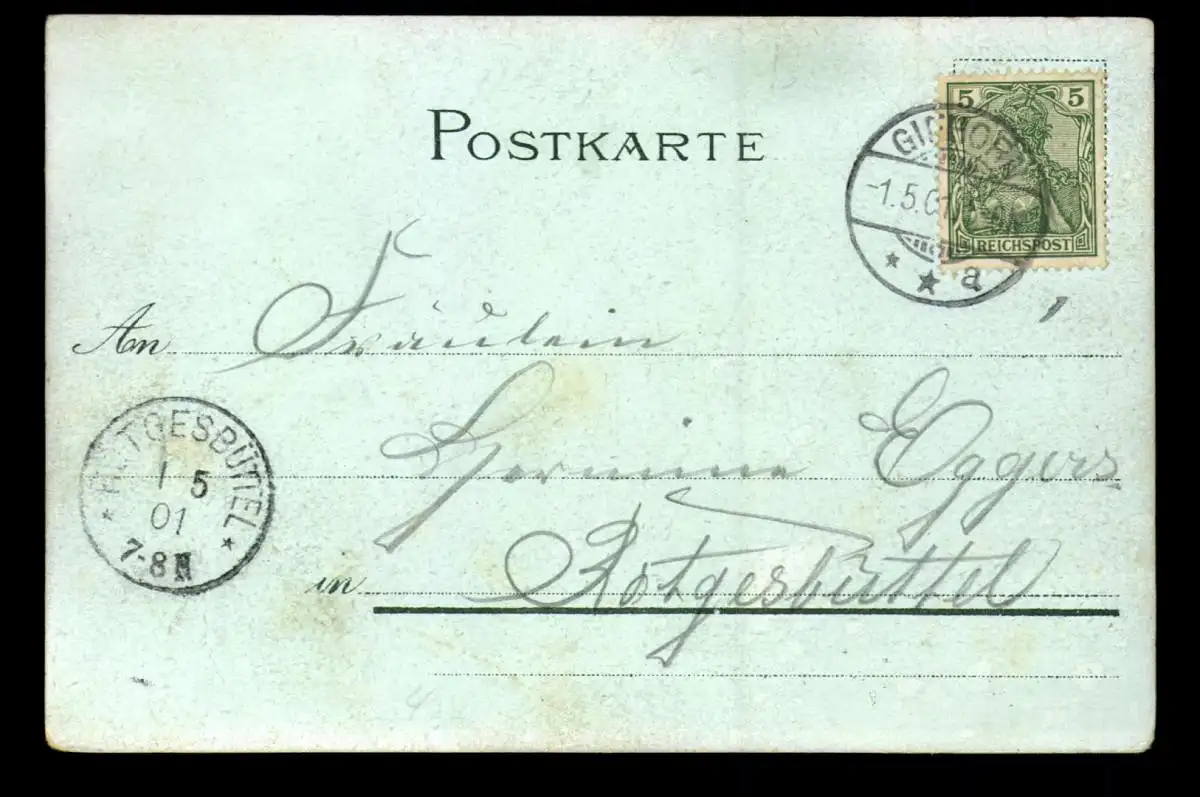 POSTKARTE
5 5
REICHSPOST
GIFHORN
-1.5.01
a
An Fräulein
Hermine Eggers
in Rötgesbüttel
RÖTGESBÜTTEL
1 5
01
7-8N